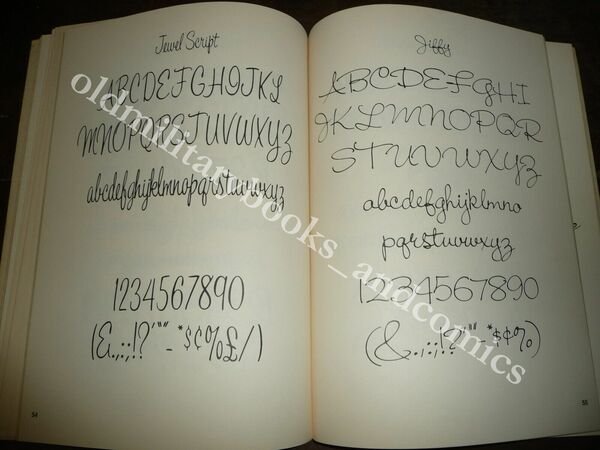 Jewel Script
ABCDEFGHIJKL
MNOPQRSTUVWXYZ
abcdefghijklmnopqrstuvwxyz
1234567890
(&.,:;!?'“”-*$¢%£/)
54
Jiffy
ABCDEFGHI
JKLMNOPQR
STUVWXYZ
abcdefghijklmno
pqrstuvwxyz
1234567890
(&.,:;!?'“”-*$¢%)
55
oldmilitarybooks_andcomics